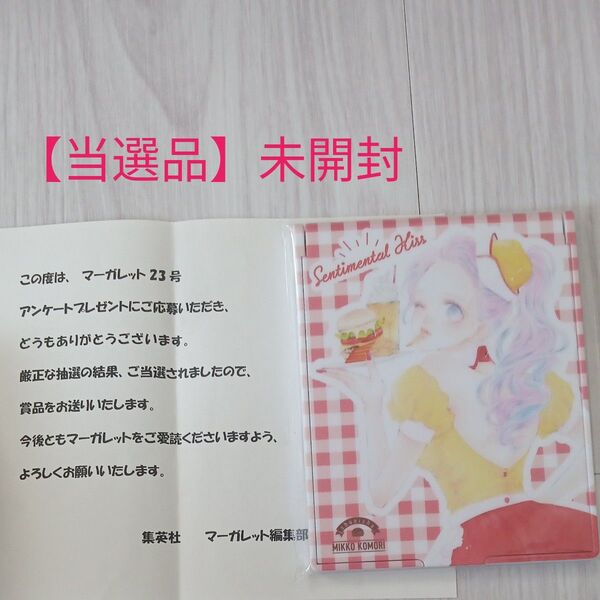 【当選品】未開封
この度は、マーガレット23号
アンケートプレゼントにご応募いただき、
どうもありがとうございます。
厳正な抽選の結果、ご当選されましたので、
賞品をお送りいたします。
今後ともマーガレットをご愛読くださいますよう、
よろしくお願いいたします。
集英社 マーガレット編集部
Sentimental Kiss
MIKKO KOMORI